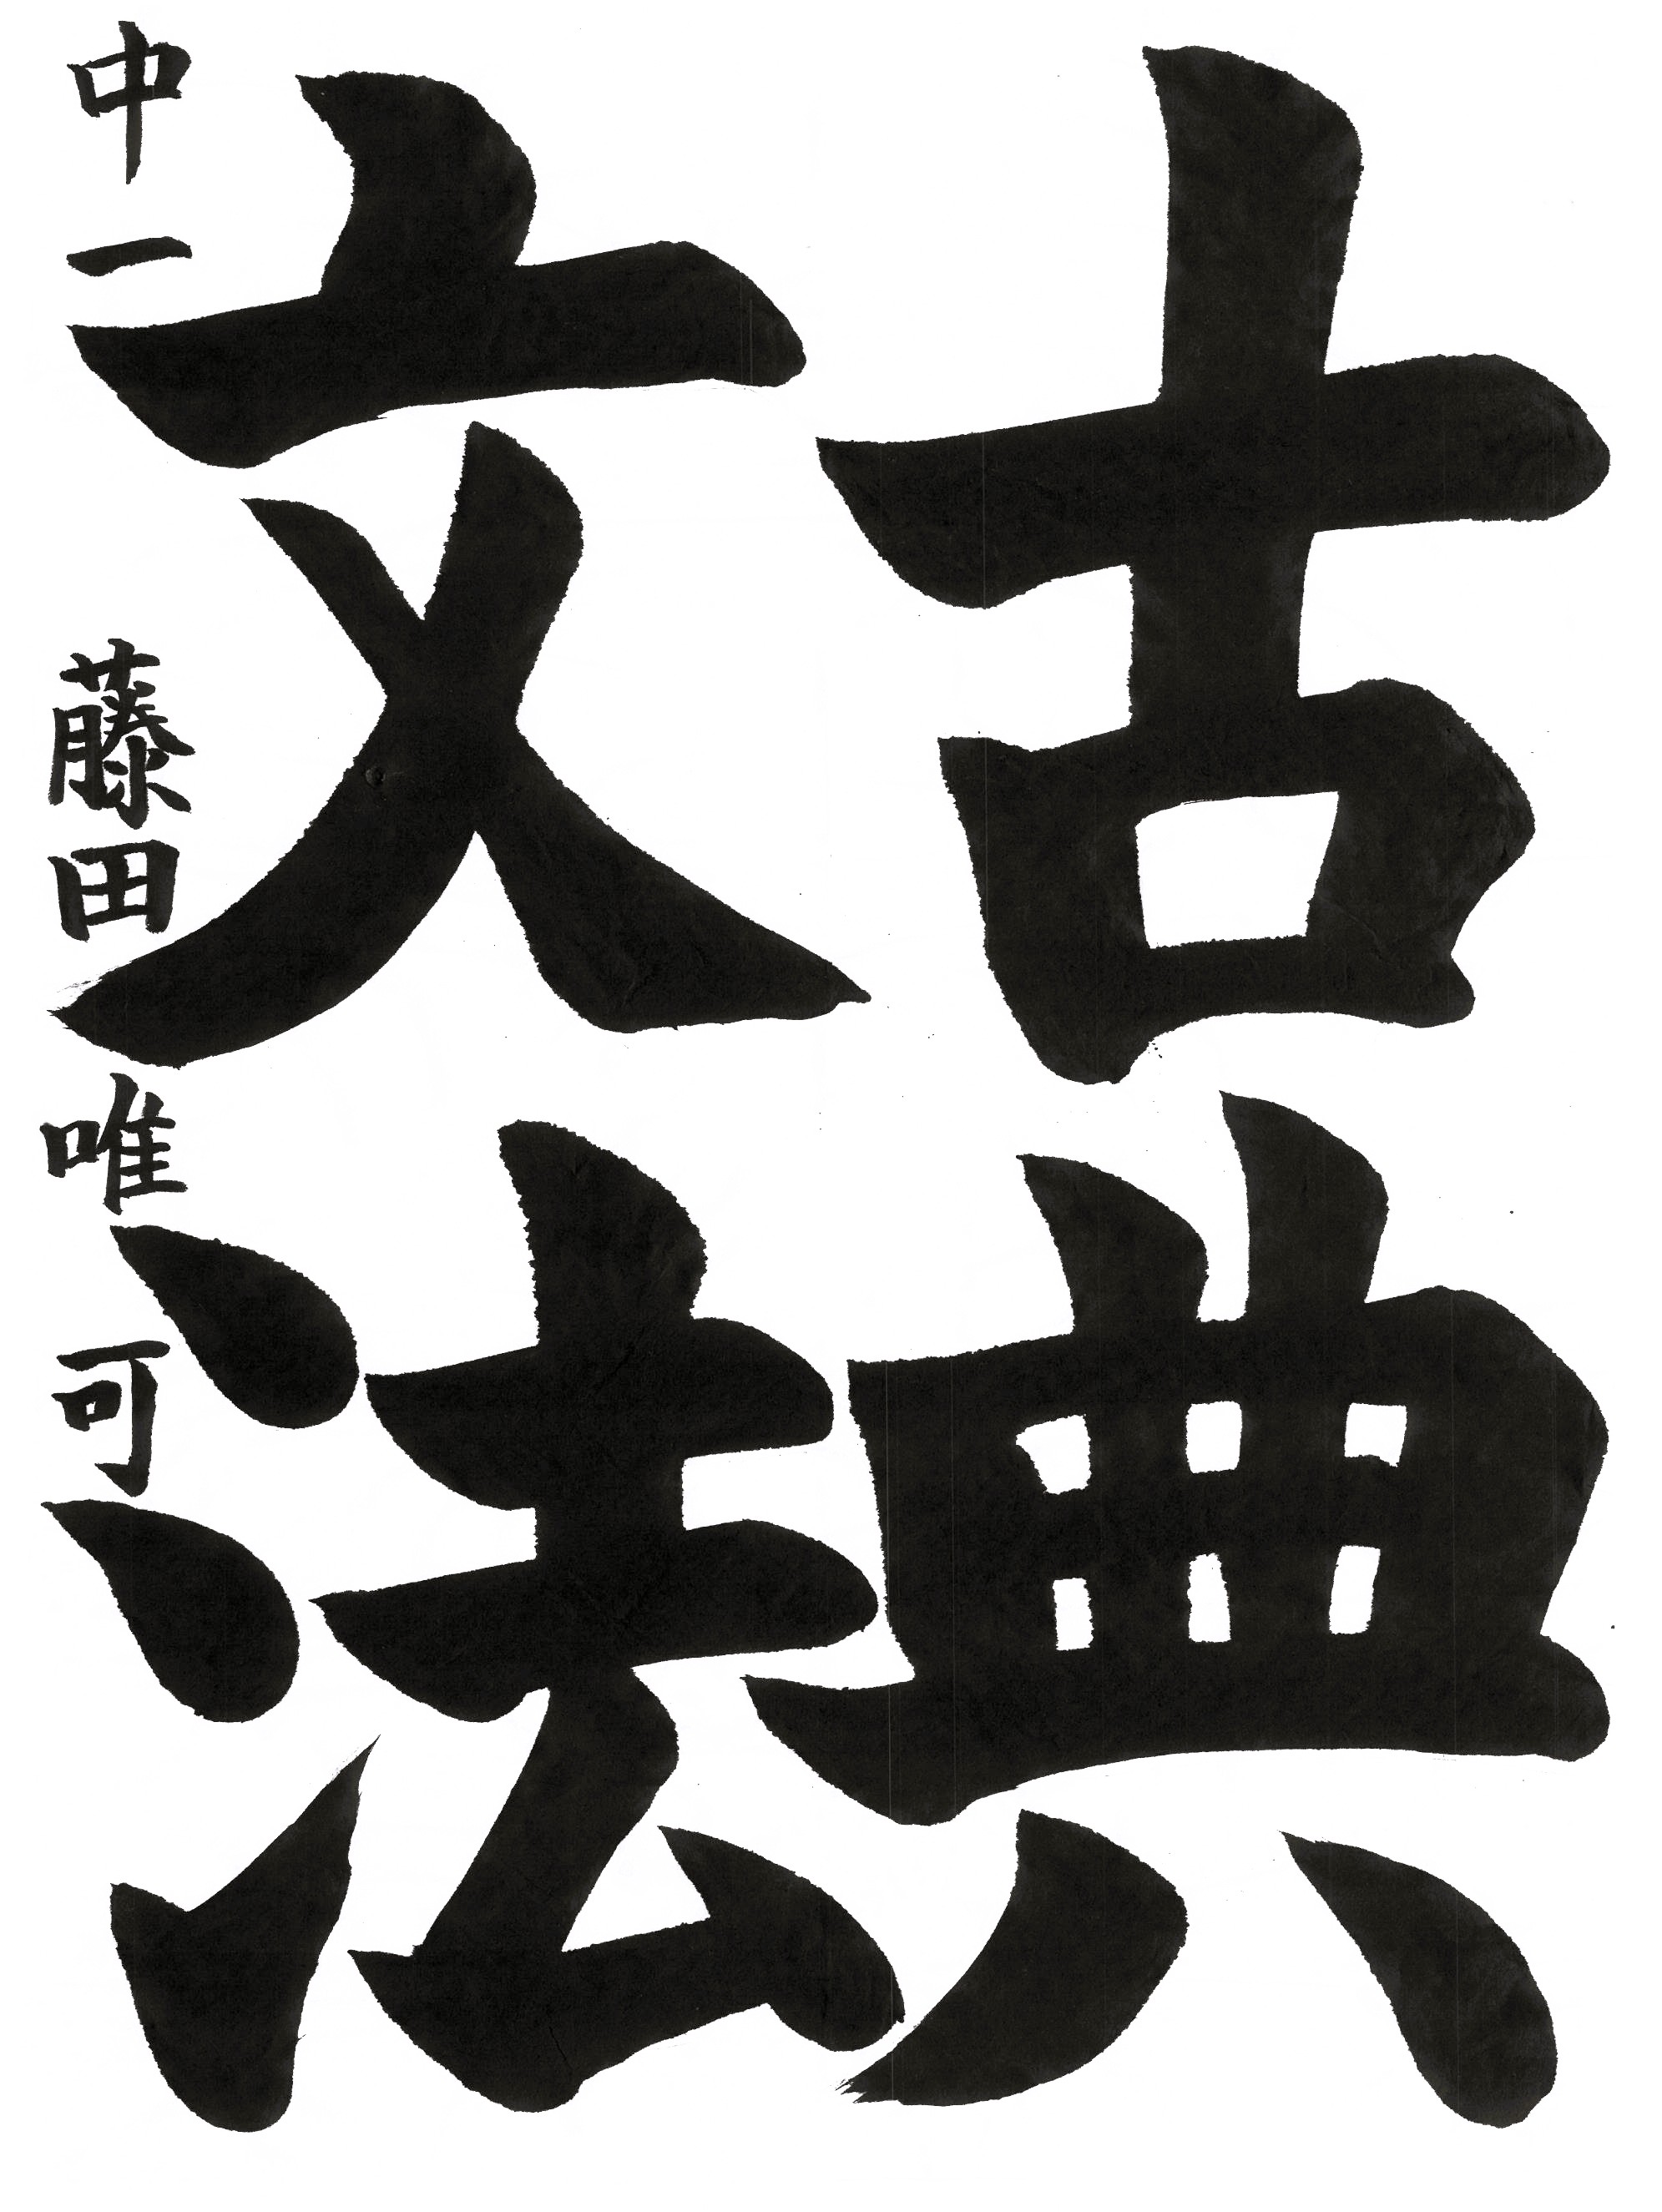 古典
文法
中一 藤田唯可